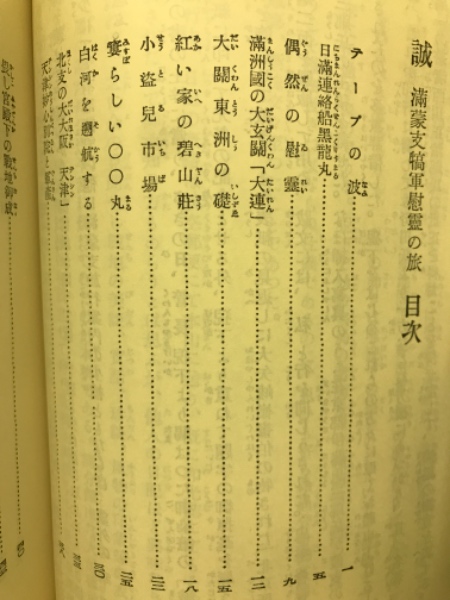 誠 滿蒙支犒軍慰靈の旅 目次
テープの波 一
日滿連絡船黑龍丸 五
偶然の慰靈 九
滿洲國の大玄關「大連」 一二
大關東洲の礎 一五
紅い家の碧山莊 一八
小盜兒市場 二三
窶らしい〇〇丸 二五
白河を遡航する
北支の大大阪 天津
宮殿下の戰地御成